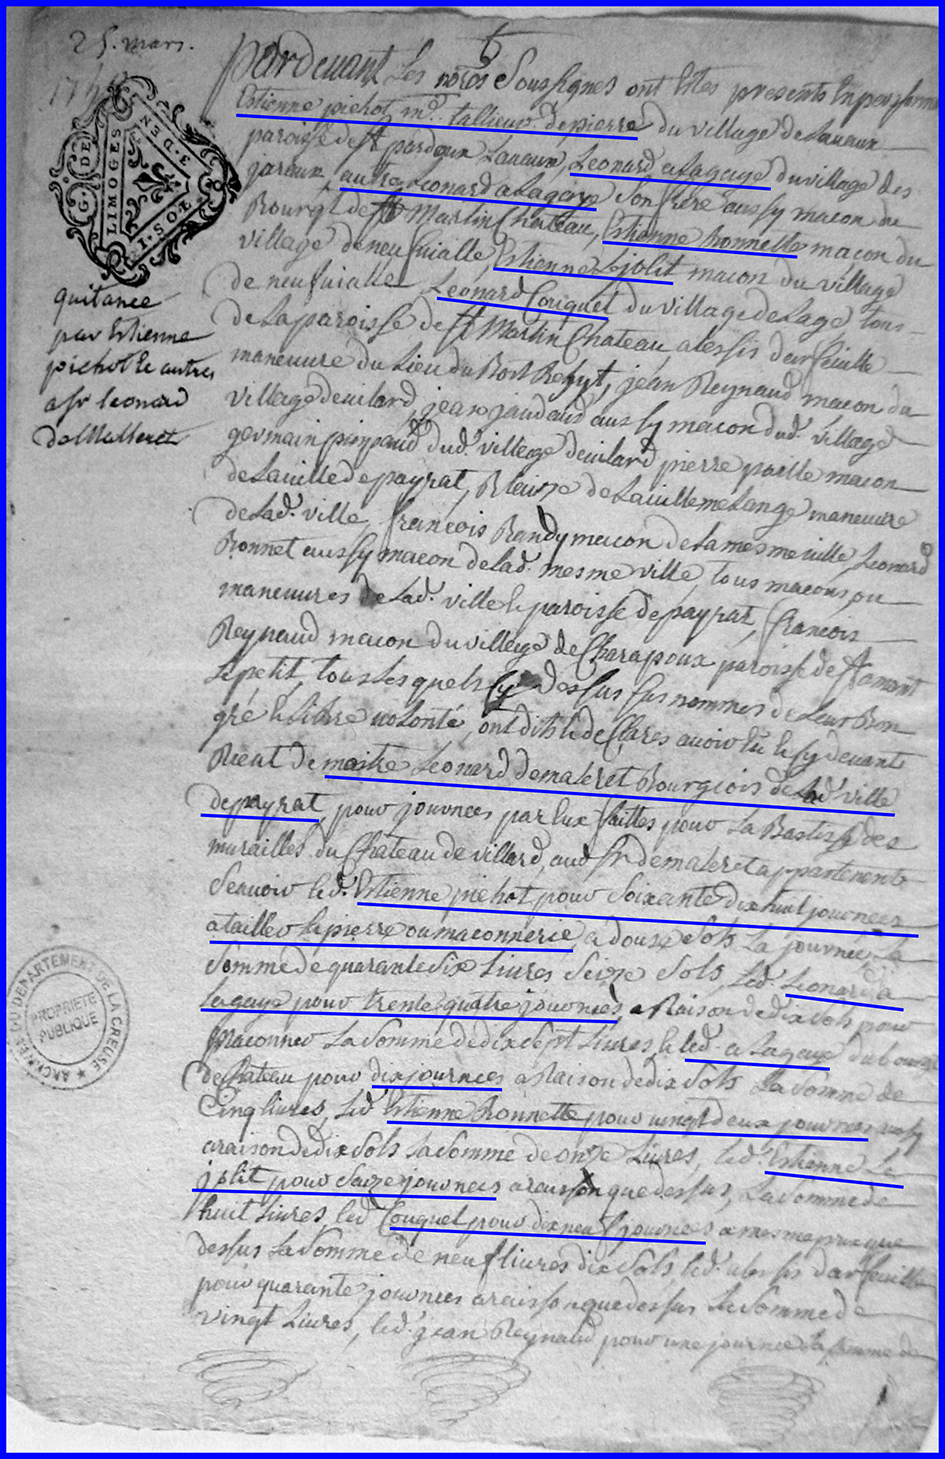 25. mars.
174
G. DE
LIMOGES
3. DEN.
I. SOL
quitance
par Estienne
pichot & autres
a sr leonard
deMalleret
ARCHIVES DU DEPARTEMENT DE LA CREUSE
PROPRIETE
PUBLIQUE
Pardevant Les nores Soussignes ont Estes presents En personne
Estienne pichot, me. tallieur de pierre du village de Lavaux
paroisse de st pardoux Lavaux, Leonard aLagaye du village des
gareaux, autre Leonard aLagaye Son frère aussy macon du
Bourgt de st Martin Chateau, Estienne Bonnette macon du
village de neufvialle, Estienne Lejolit macon du village
de neufvialle, Leonard Couquet du village de Lage, tous
de La paroisse de st Martin Chateau, alessis darfeuille
maneuvre du Lieu du , jean Reynaud macon du
village de vilard, jean jandaud aussy macon dud. village
germain dud. village de vilard, pierre paille macon
de La ville de payrat, de La villemelange maneuvre
de Lad. ville, francois Randy macon de La mesme ville, Leonard
Bonnet aussy macon de Lad. mesme ville, tous macons ou
maneuvres de Lad. ville & paroisse de payrat, francois
Reynaud macon du village de Charapoux paroisse de st amant
Lepetit, tous Lesquels Cy dessus nommes de Leur Bon
gré & Libre volonté, ont dit & desclares avoir Eu & Cy devant
Receut de maitre Leonard demaleret Bourgeois de Lad. ville
de payrat, pour journées par Eux faittes pour La Bastisse des
murailles du Chateau de villard, aud. sr demaleret appartenant
Scavoir led. Estienne pichot pour Soixante dix huit journées
a tailler La pierre ou maconnerie, a douze Sols La journée, La
Somme de quarante Six Livres Seize Sols, Led. Leonard a
Lagaye pour trente quatre journées, a Raison de dix Sols pour
Maconner La Somme de dix sept Livres, Le led. aLagaye du bourg
de Chateau pour dix journées a Raison de dix Sols La Somme de
Cinq livres, Led. Estienne Bonnette pour vingt deux journées
a raison de dix Sols La Somme de onze Livres, led. Estienne Le
jolit pour Saize journées a raison que dessus, La Somme de
huit Livres, led. Couquet pour dix neuf journées a mesme prix que
dessus La Somme de neuf livres dix Sols, led. alessis darfeuille
pour quarante journées a raison que dessus La Somme de
vingt Livres, led. jean Reynaud pour une journée La Somme de